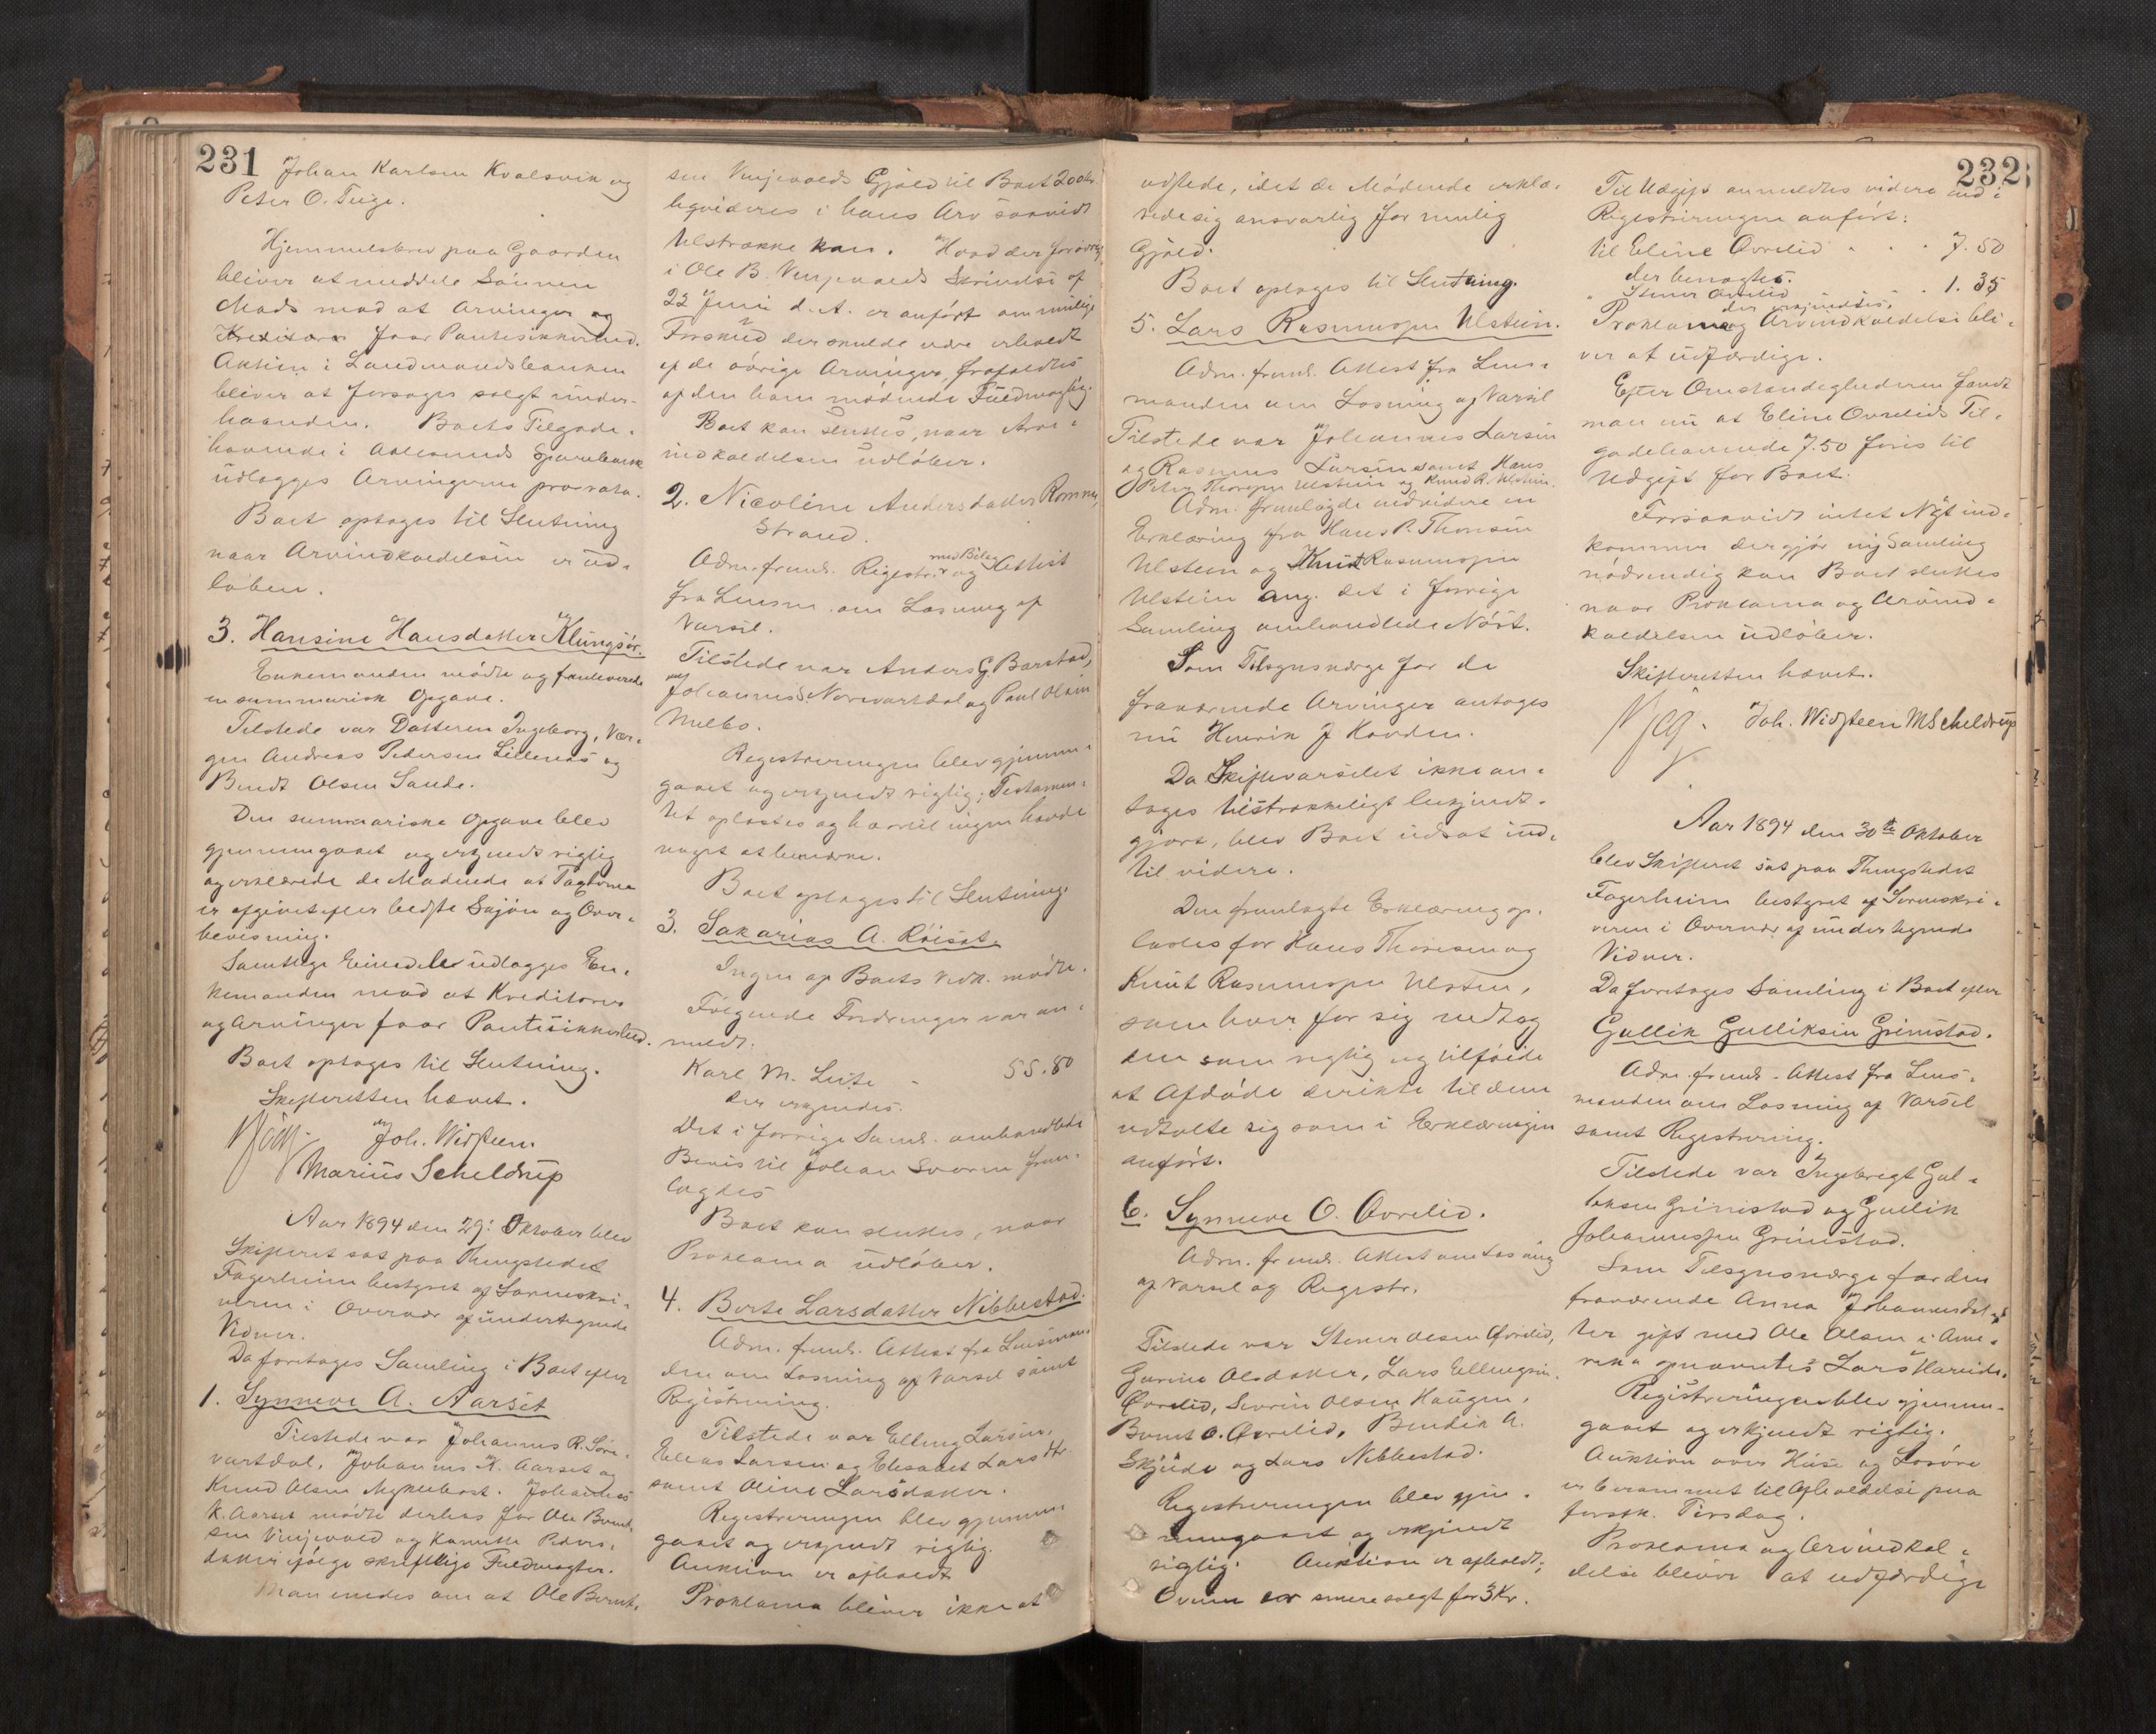 231
Johan Karlsen Kvalsvik og
Peter O. Teige.
Hjemmelsbrev paa Gaarden
bliver at meddele Sönnen
Mads mod at Arvinger og
Kreditorer faar Pantesikkerhed.
Aktien i Landmandsbanken
bliver at forsøges solgt under-
haanden. Boets Tilgode-
havende i Aalesunds Sparebank
udlægges Arvingerne prorata.
Boet optages til Slutning
naar Arvindkaldelsen er ud-
løben.
3. Hansine Hansdatter Klungsör.
Enkemanden mödte og fremleverede
en summarisk Opgave.
Tilstede var Datteren Ingeborg, Vær-
gen Andreas Pedersen Lillenæs og
Berndt Olsen Sande.
Den summariske Opgave blev
gjennemgaaet og erkjendt rigtig
og erklærede de Mødende at Taxterne
er afgivet efter bedste Skjön og Over-
bevisning.
Samtlige Eiendele udlægges En-
kemanden mod at Kreditorer
og Arvinger faar Pantesikkerhed.
Boet optages til Slutning.
Skifteretten hævet.
Joh. Widsteen.
Marius Scheldrup
Aar 1894 den 29. Oktober blev
Skifteret sat paa Thingstedet
Fagerheim bestyret af Sorenskri-
veren i Overvær af undertegnede
Vidner.
Da foretages Samling i Boet efter
1. Synneve A. Aarset
Tilstede var Johannes R. Søre-
vartdal, Johannes K. Aarset og
Knud Olsen Myklebost. Johannes
K. Aarset mødte derhos for Ole Bernt-
sen Vinjevold og Kamilla Peders-
datter ifølge skriftlige Fuldmagter.
Man enedes om at Ole Bernt-
sen Vinjevolds Gjæld til Boet 200 kr.
likvideres i hans Arv saavidt
tilstrække kan. Hvad der forøvrig
i Ole B. Vinjevolds Skrivelse af
22 Juni d. A. er anført om mulige
Forskud der skulde være erholdt
af de øvrige Arvinger, frafaldtes
af den ham mødende Fuldmægtig.
Boet kan sluttes, naar Arv-
indkaldelsen udløber.
2. Nicoline Andersdatter
Strand.
Adm. freml. Registr. med Bilag og Attest
fra Lensm. om Læsning af
Varsel.
Tilstede var Anders G. Barstad,
Johannes Norevartdal og Paul Olsen
Melbo.
Registreringen blev gjennem-
gaaet og erkjendt rigtig; Testamen-
tet oplæstes og hertil ingen havde
noget at bemærke.
Boet optages til Slutning.
3. Sakarias A. Röiset.
Ingen af Boets Vedk. mødte.
Følgende Fordringer var an-
meldt:
Karl M. Leite - 55.80
der erkjendes.
Det i forrige Saml. omhandlede
Bevis til Johan Svoren frem-
lagdes
Boet kan sluttes, naar
Proklama udløber.
4. Berte Larsdatter Nibbestad.
Adm. freml. Attest fra Lensman-
den om Læsning af Varsel samt
Registrering.
Tilstede var Elling Larsen,
Elias Larsen og Elisabet Larsdtr.
samt Oline Larsdatter.
Registreringen blev gjennem-
gaaet og erkjendt rigtig.
Auktion er afholdt
Proklama bliver ikke at
232
udstede, idet de Mødende erklæ-
rede sig ansvarlig for mulig
Gjæld.
Boet optages til Slutning.
5. Lars Rasmussen Ulstein.
Adm. freml. Attest fra Lens-
manden om Læsning af Varsel
Tilstede var Johannes Larsen
og Rasmus Larsen samt Hans
Peter Thoresen Ulstein og Knud R. Ulstein.
Adm. fremlagde endvidere en
Erklæring fra Hans P. Thoresen
Ulstein og Knut Rasmussen
Ulstein ang. det i forrige
Samling omhandlede Nöst.
Som Tilsynsværge for de
fraværende Arvinger antages
nu Henrik J. Hovden.
Da Skiftevarselet ikke an-
tages tilstrækkeligt bekjendt-
gjort, blev Boet udsat ind-
til videre.
Den fremlagte Erklæring op-
læstes for Hans Thoresen og
Knut Rasmussen Ulstein,
som hver for sig vedtog
den som rigtig og tilføiede
at Afdøde direkte til dem
udtalte sig som i Erklæringen
anført.
6. Synneve O. Övrelid.
Adm. freml. Attest om Læsning
af Varsel og Registr.
Tilstede var Stener Olsen Øvrelid,
Gurine Olsdatter, Lars Ellingsen
Øvrelid, Severin Olsen Haugen,
Bernt O. Øvrelid, Bendik A.
Skjeide og Lars Nibbestad.
Registreringen blev gjen-
nemgaaet og erkjendt
rigtig. Auktion er afholdt;
Ovnen er senere solgt for 3 Kr.
Til Udgift anmeldtes videre end i
Registreringen anført:
til Eline Övrelid - - - 7.50
der benægtes.
" Stener Øvrelid - - 1.35
der erkjendtes.
Proklama og Arvindkaldelse bli-
ver at udfærdige.
Efter Omstændighederne fandt
man nu at Eline Øvrelids Til-
godehavende 7.50 føres til
Udgift for Boet.
Forsaavidt intet Nyt ind-
kommer der gjør ny Samling
nødvendig kan Boet sluttes
naar Proklama og Arvind-
kaldelsen udløber.
Skifteretten hævet.
Joh. Widsteen M Scheldrup
Aar 1894 den 30te Oktober
blev Skifteret sat paa Thingstedet
Fagerheim bestyret af Sorenskri-
veren i Overvær af undertegnede
Vidner.
Da foretages Samling i Boet efter
Gullik Gulliksen Grimstad.
Adm. freml. Attest fra Lens-
manden om Læsning af Varsel
samt Registrering.
Tilstede var Ingebrigt Gul-
liksen Grimstad og Gullik
Johannessen Grimstad.
Som Tilsynsværge for den
fraværende Anna Johannesdat-
ter gift med Ole Olsen i Ame-
rika opnævntes Lars Hareide.
Registreringen blev gjennem-
gaaet og erkjendt rigtig.
Auktion over Huse og Løsøre
er berammet til Afholdelse paa
førstk. Tirsdag.
Proklama og Arvindkal-
delse bliver at udfærdige